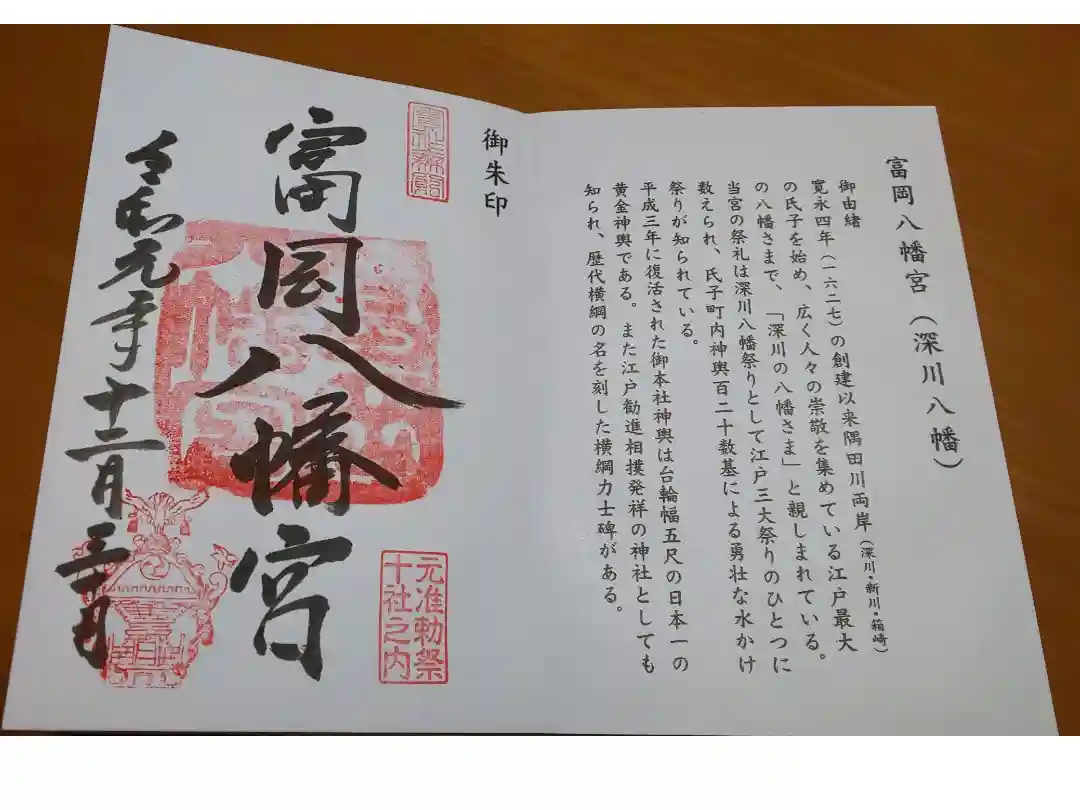 富岡八幡宮（深川八幡）
御由緒
寛永四年（一六二七）の創建以来隅田川両岸（深川・新川・箱崎）
の氏子を始め、広く人々の崇敬を集めている江戸最大
の八幡さまで、「深川の八幡さま」と親しまれている。
当宮の祭礼は深川八幡祭りとして江戸三大祭りのひとつに
数えられ、氏子町内神輿百二十数基による勇壮な水かけ
祭りが知られている。
平成三年に復活された御本社神輿は台輪幅五尺の日本一の
黄金神輿である。また江戸勧進相撲発祥の神社としても
知られ、歴代横綱の名を刻した横綱力士碑がある。
御朱印
元准勅祭
十社之内
富岡八幡宮
令和元年十二月